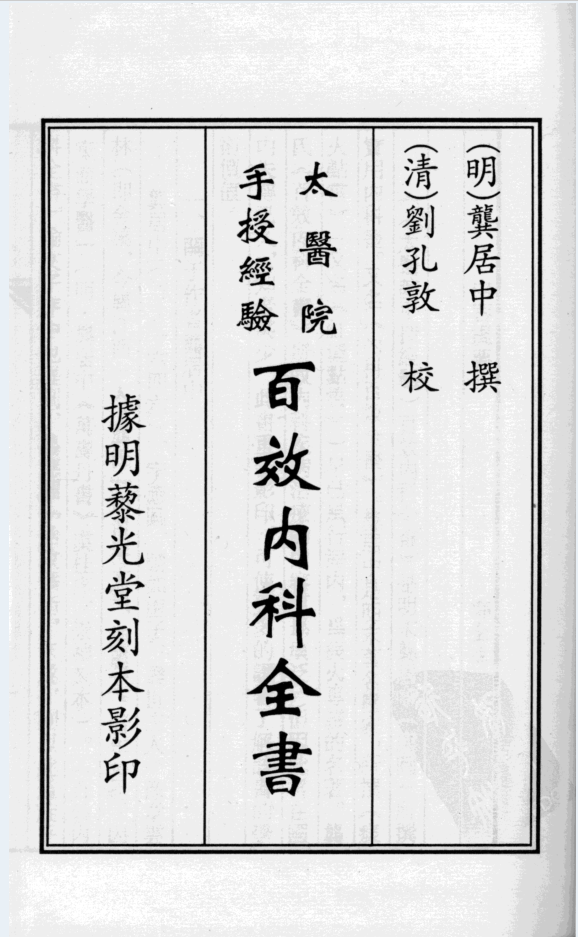 (明)龔居中 撰
(清)劉孔敦 校
太醫院
手授經驗
百效內科全書
據明藜光堂刻本影印